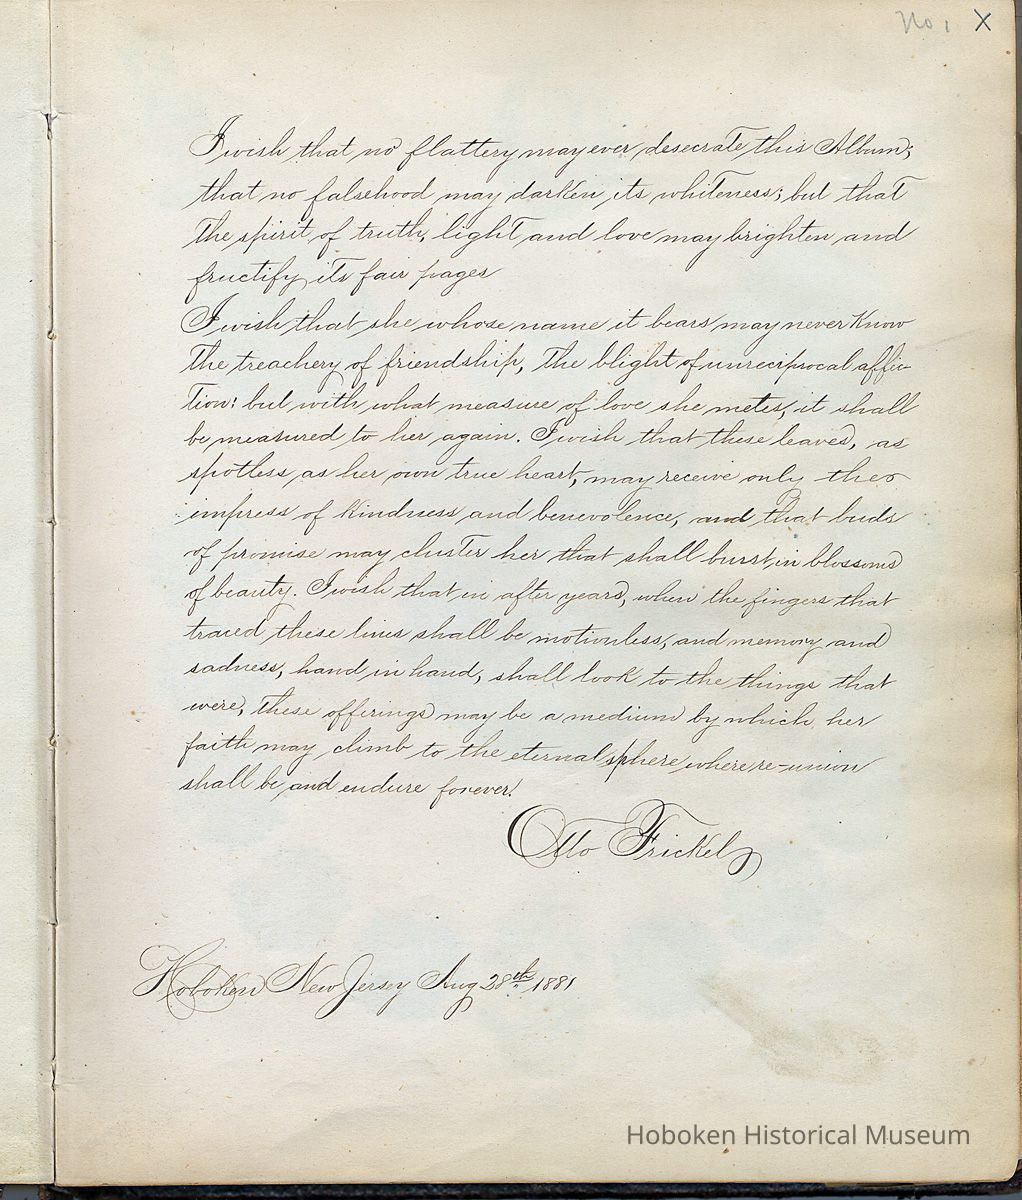 No 1 X
I wish that no flattery may ever desecrate this Album;
that no falsehood may darken its whiteness; but that
the spirit of truth, light and love may brighten and
fructify its fair pages
I wish that she whose name it bears may never know
the treachery of friendship, the blight of unreciprocal affec-
tion: but with what measure of love she metes, it shall
be measured to her again. I wish that these leaves, as
spotless as her own true heart, may receive only the
impress of kindness and benevolence, and that buds
of promise may cluster her that shall burst in blossoms
of beauty. I wish that in after years, when the fingers that
traced these lines shall be motionless, and memory and
sadness, hand in hand, shall look to the things that
were, these offerings may be a medium by which her
faith may climb to the eternal sphere where re-union
shall be and endure forever!
Otto Frickel
Hoboken New Jersey Aug 28th 1881
Hoboken Historical Museum